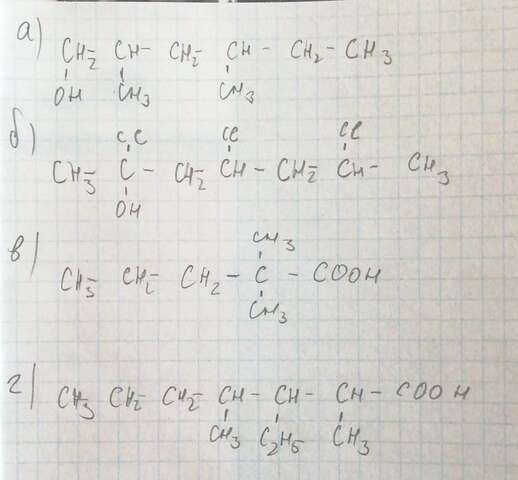 а) CH2- CH- CH2- CH - CH2- CH3
OH CH3 CH3
б) Cl Cl Cl
CH3- C - CH2- CH - CH2- CH - CH3
OH
в) CH3
CH3- CH2- CH2 - C - COOH
CH3
г) CH3- CH2- CH2- CH - CH - CH - COOH
CH3 C2H5 CH3